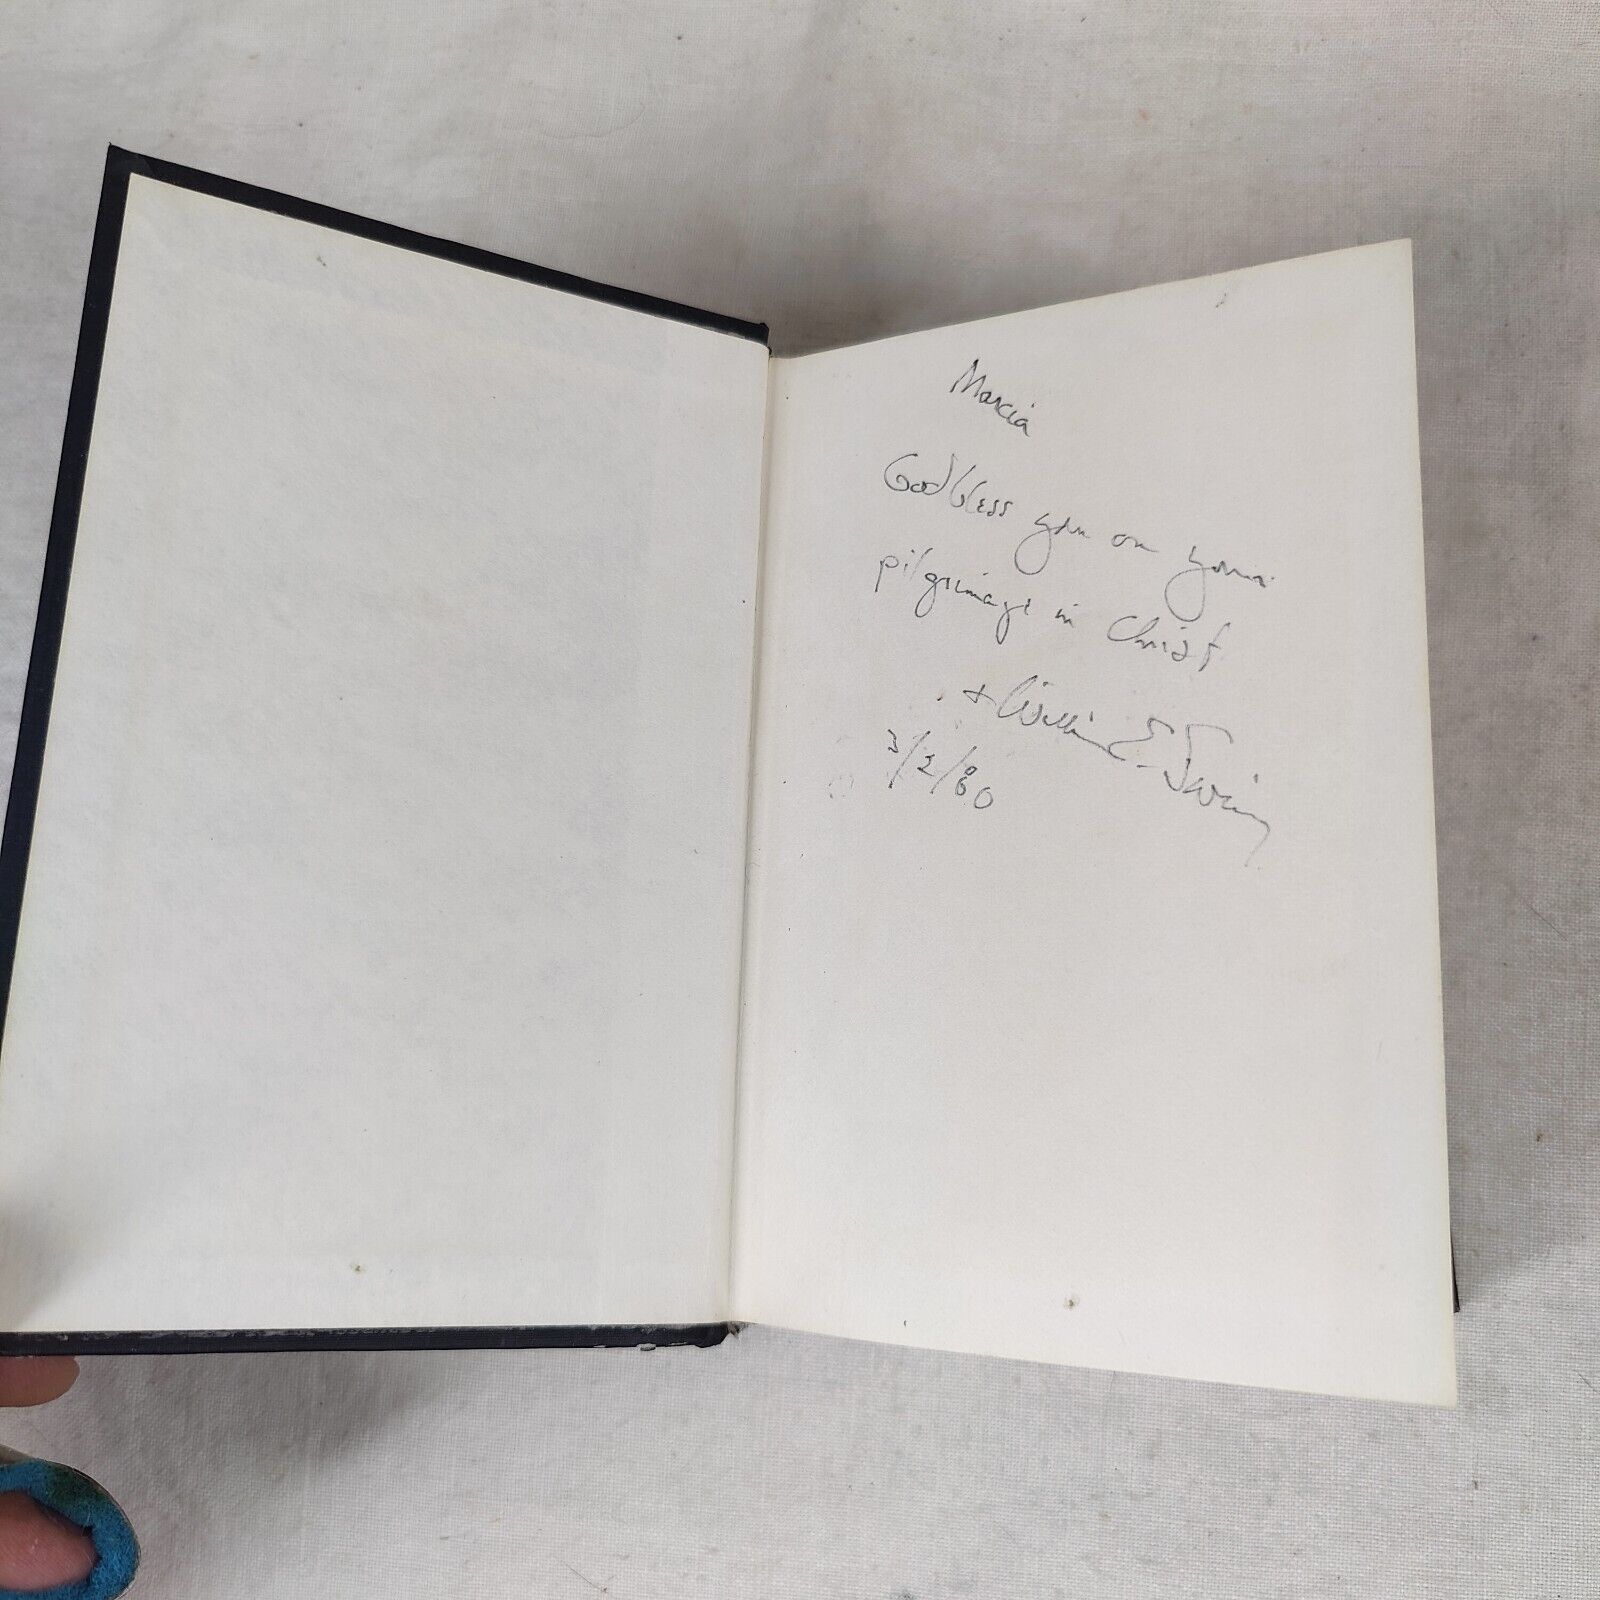 Marcia
God bless you on your
pilgrimage in Christ
+ William E. Swing
3/2/80